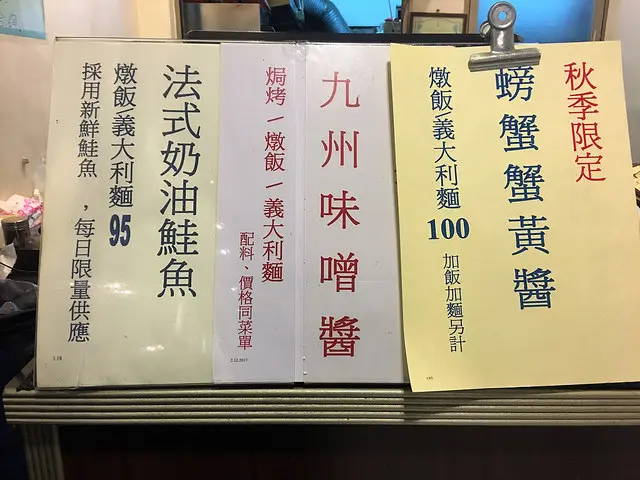 秋季限定
螃蟹蟹黃醬
燉飯/義大利麵 100
加飯加麵另計
九州味噌醬
焗烤/燉飯/義大利麵
配料、價格同菜單
2.12.2017
法式奶油鮭魚
燉飯/義大利麵 95
採用新鮮鮭魚，每日限量供應